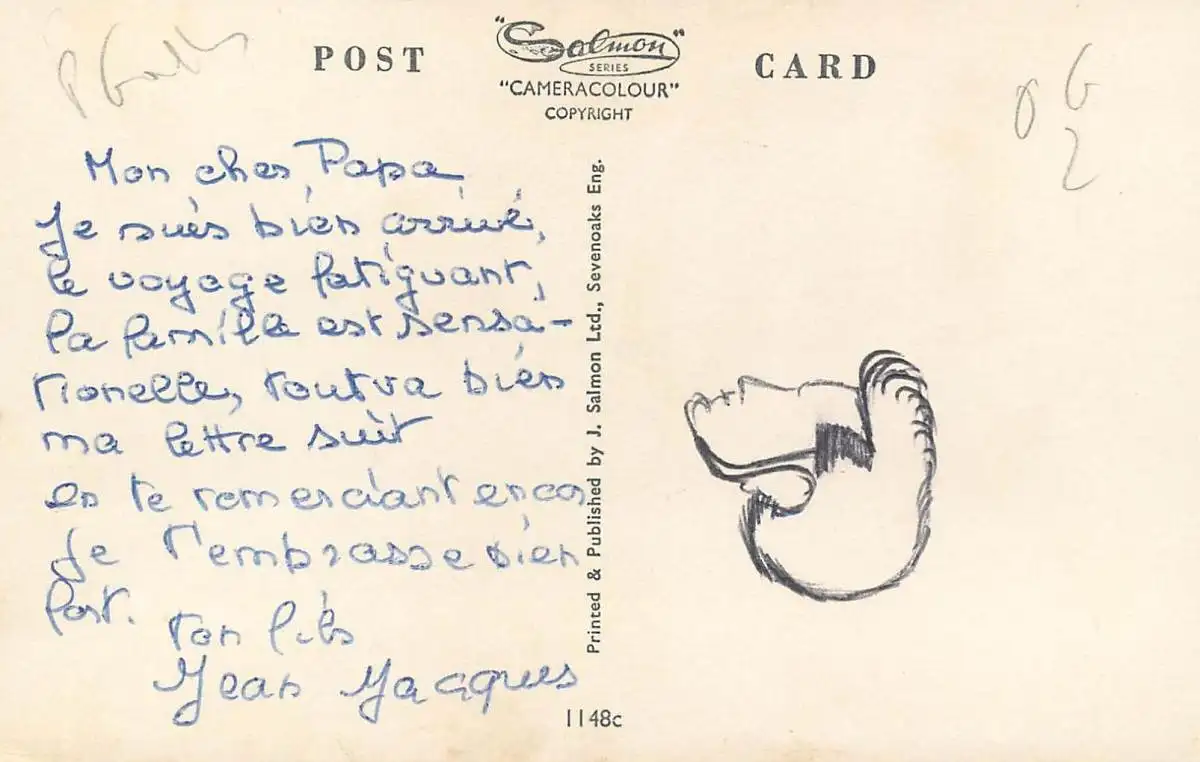 POST CARD
"Salmon"
SERIES
"CAMERACOLOUR"
COPYRIGHT
Mon cher Papa,
Je suis bien arrivé,
le voyage fatiguant,
la famille est sensa-
tionelle, tout va bien
ma lettre suit
en te remerciant encor
Je t'embrasse bien
fort.
ton fils
Jean Jacques
Printed & Published by J. Salmon Ltd., Sevenoaks Eng.
1148c